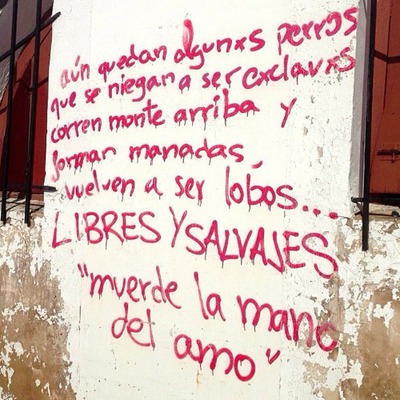 aún quedan algunxs perrxs
que se niegan a ser exclavxs
corren monte arriba y
forman manadas,
vuelven a ser lobos...
LIBRES Y SALVAJES
"muerde la mano
del amo"